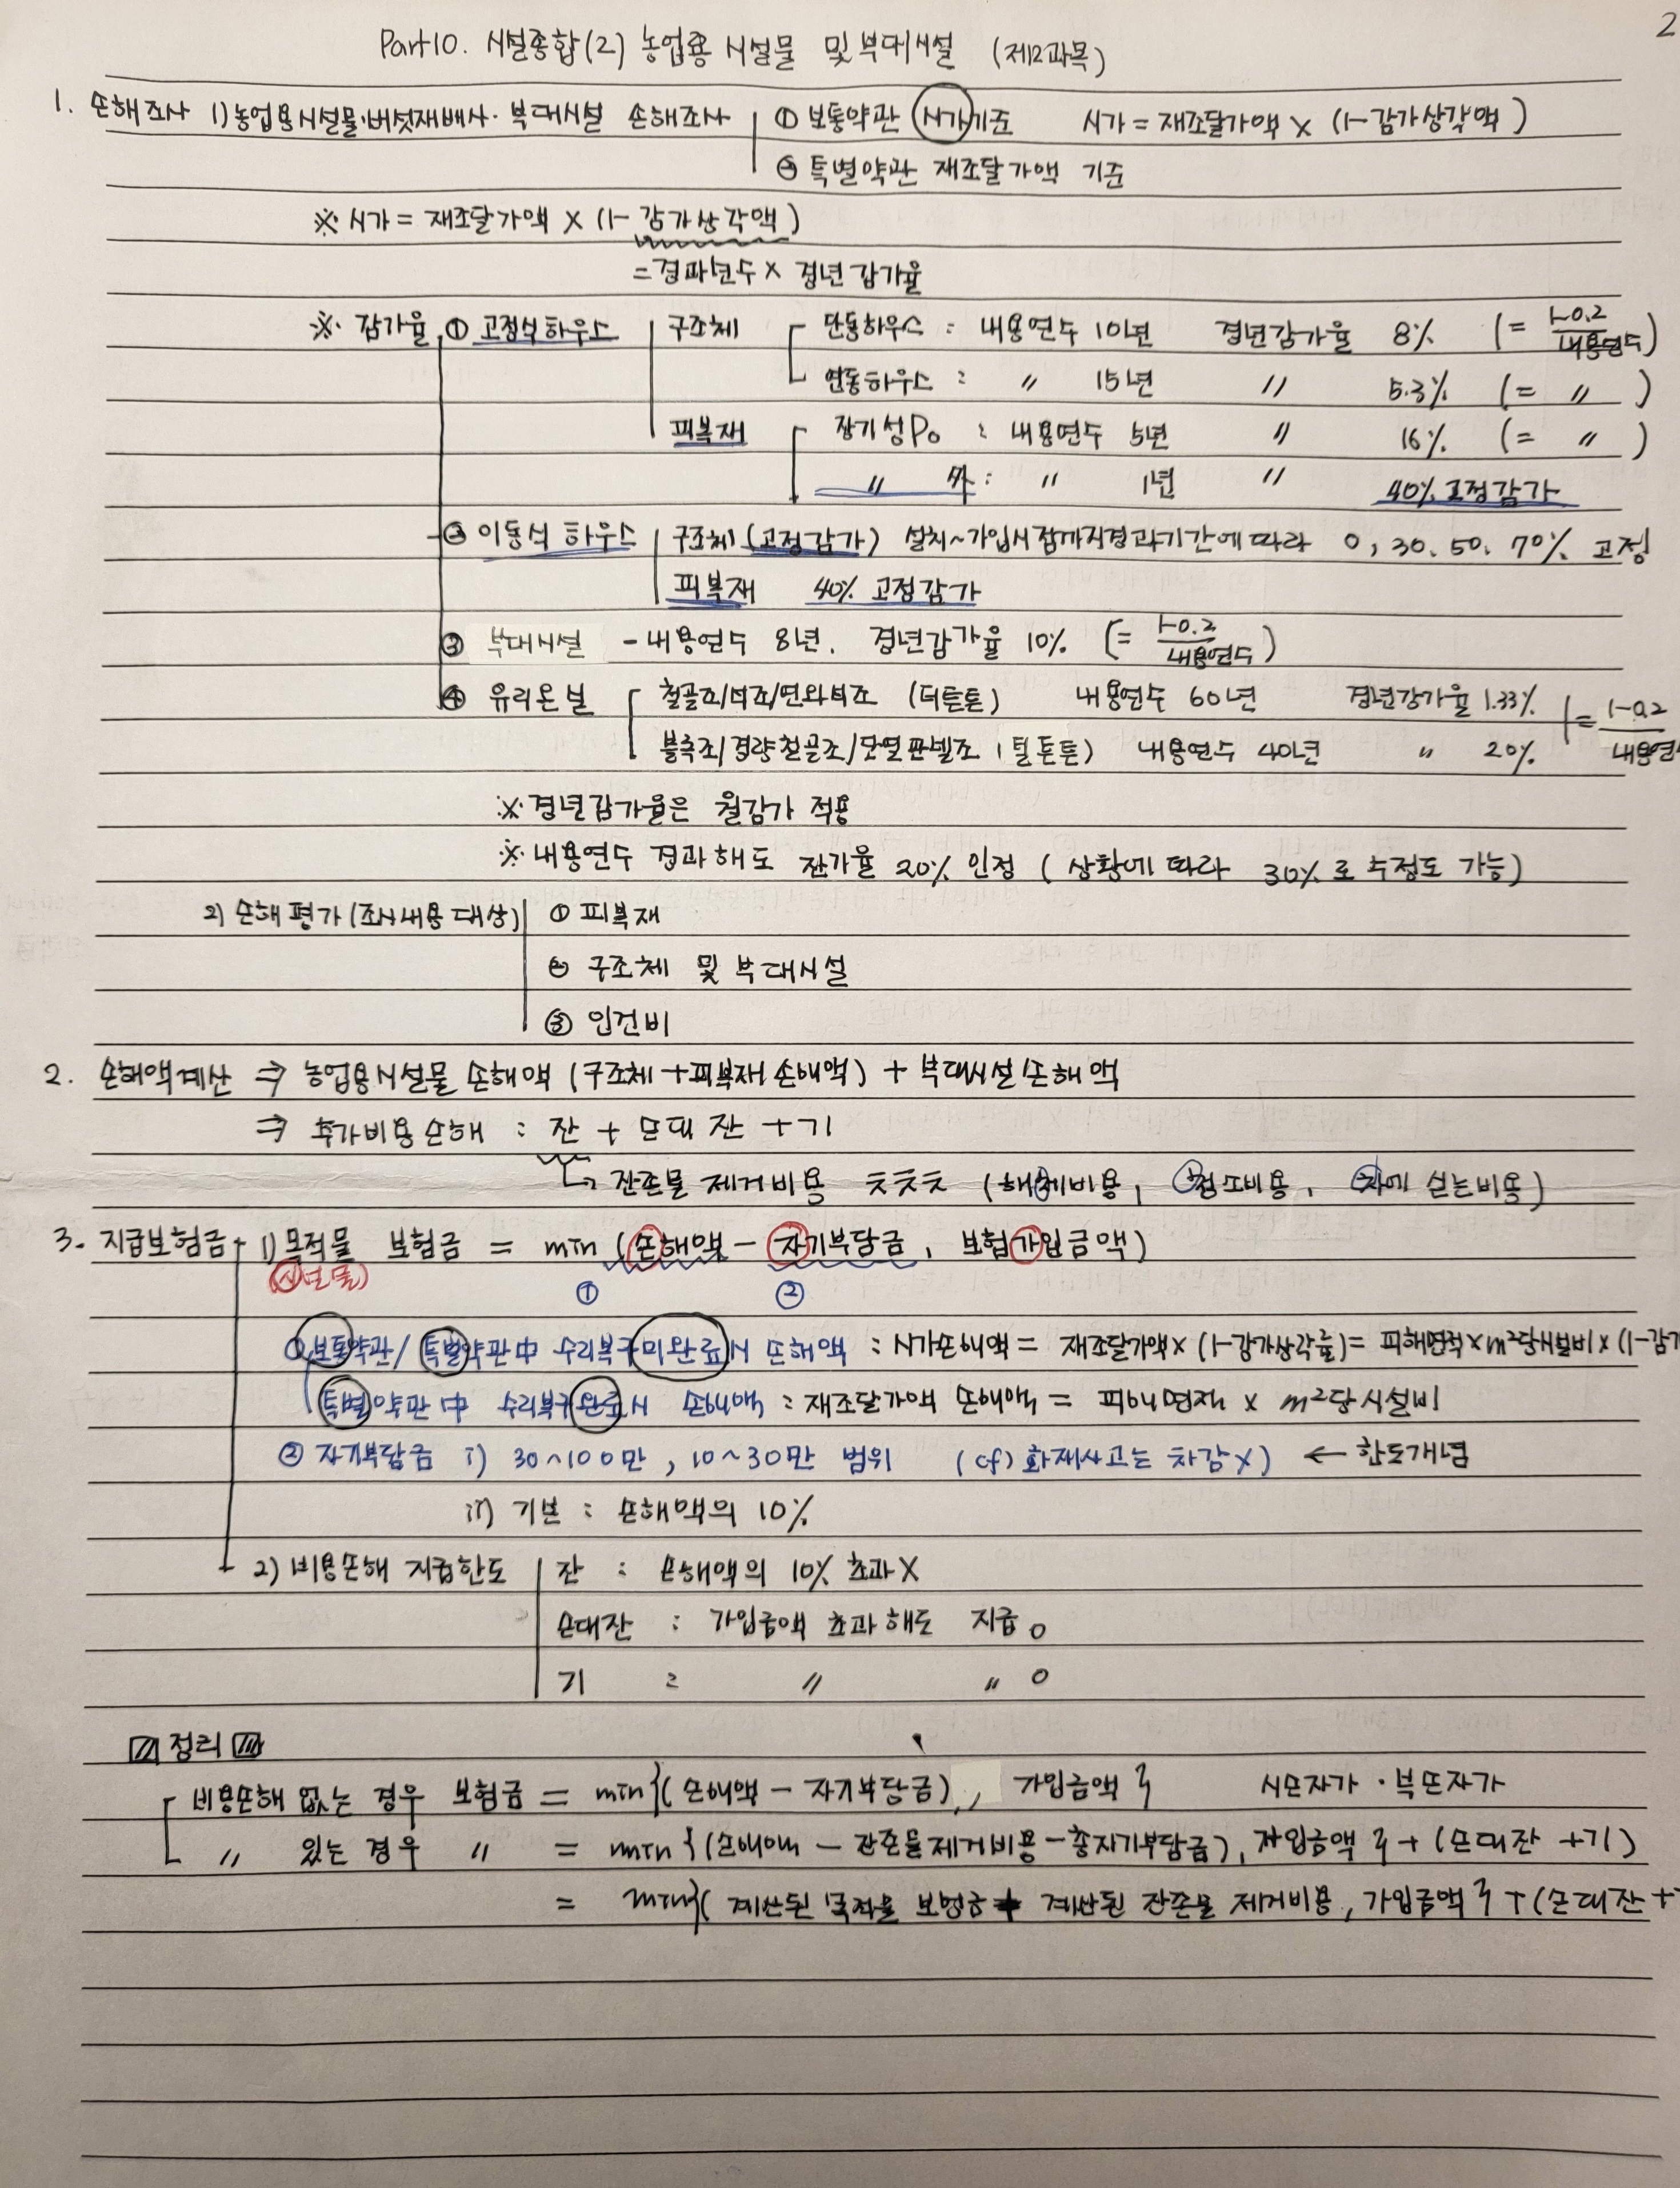 2
Part10. 시설종합(2) 농업용 시설물 및 부대시설 (제2과목)
1. 손해조사 1) 농업용시설물·버섯재배사·부대시설 손해조사 ① 보통약관 시가기준 시가 = 재조달가액 × (1-감가상각액)
② 특별약관 재조달가액 기준
※ 시가 = 재조달가액 × (1- 감가상각액)
= 경과년수 × 경년감가율
※ 감가율 ① 고정식하우스 구조체 단동하우스 : 내용연수 10년 경년감가율 8% (= 1-0.2 / 내용연수)
연동하우스 : 〃 15년 〃 5.3% (= 〃 )
피복재 장기성Po : 내용연수 5년 〃 16% (= 〃 )
〃 外 : 〃 1년 〃 40% 고정감가
② 이동식 하우스 구조체 (고정감가) 설치~가입시점까지경과기간에 따라 0, 30. 50. 70% 고정
피복재 40% 고정감가
③ 부대시설 - 내용연수 8년. 경년감가율 10% (= 1-0.2 / 내용연수)
④ 유리온실 철골조/석조/연와석조 (더튼튼) 내용연수 60년 경년감가율 1.33% = 1-0.2 / 내용연
블록조/경량철골조/단열판넬조 (덜튼튼) 내용연수 40년 〃 20%
※ 경년감가율은 월감가 적용
※ 내용연수 경과해도 잔가율 20% 인정 ( 상황에 따라 30%로 수정도 가능)
2) 손해평가(조사내용 대상) ① 피복재
② 구조체 및 부대시설
③ 인건비
2. 손해액계산 ⇒ 농업용시설물 손해액 (구조체+피복재 손해액) + 부대시설손해액
⇒ 추가비용손해 : 잔 + 손대잔 + 기
↳ 잔존물 제거비용 ㅊㅊㅊ (해체비용, 청소비용, 차에 싣는비용)
3. 지급보험금 1) 목적물 보험금 = min (손해액 - 자기부담금, 보험가입금액)
(시설물) ① ②
① 보통약관/ 특별약관中 수리복구미완료시 손해액 : 시가손해액 = 재조달가액×(1-감가상각률)= 피해면적×m²당시설비×(1-감가
특별약관 中 수리복구완료시 손해액 : 재조달가액 손해액 = 피해면적 × m²당시설비
② 자기부담금 i) 30~100만, 10~30만 범위 (cf) 화재사고는 차감X) ← 한도개념
ii) 기본 : 손해액의 10%
2) 비용손해 지급한도 잔 : 손해액의 10% 초과X
손대잔 : 가입금액 초과해도 지급 O
기 : 〃 〃 O
정리
비용손해 없는 경우 보험금 = min{(손해액 - 자기부담금), 가입금액} 시손자가 · 부손자가
〃 있는 경우 〃 = min{(손해액 - 잔존물제거비용-총자기부담금), 가입금액} + (손대잔 +기)
= min{( 계산된 목적물 보험금 + 계산된 잔존물 제거비용, 가입금액} + (손대잔 +